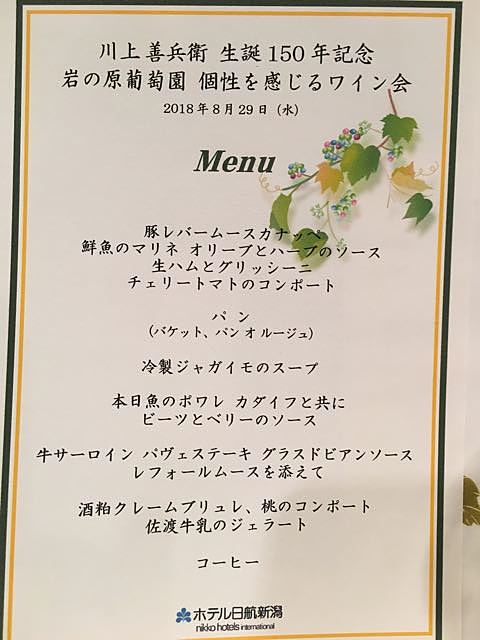 川上善兵衛 生誕150年記念
岩の原葡萄園 個性を感じるワイン会
2018年8月29日（水）
Menu
豚レバームースカナッペ
鮮魚のマリネ オリーブとハーブのソース
生ハムとグリッシーニ
チェリートマトのコンポート
パン
（バケット、パン オ ルージュ）
冷製ジャガイモのスープ
本日魚のポワレ カダイフと共に
ビーツとベリーのソース
牛サーロイン パヴェステーキ グラスドビアンソース
レフォールムースを添えて
酒粕クレームブリュレ、桃のコンポート
佐渡牛乳のジェラート
コーヒー
ホテル日航新潟
nikko hotels international